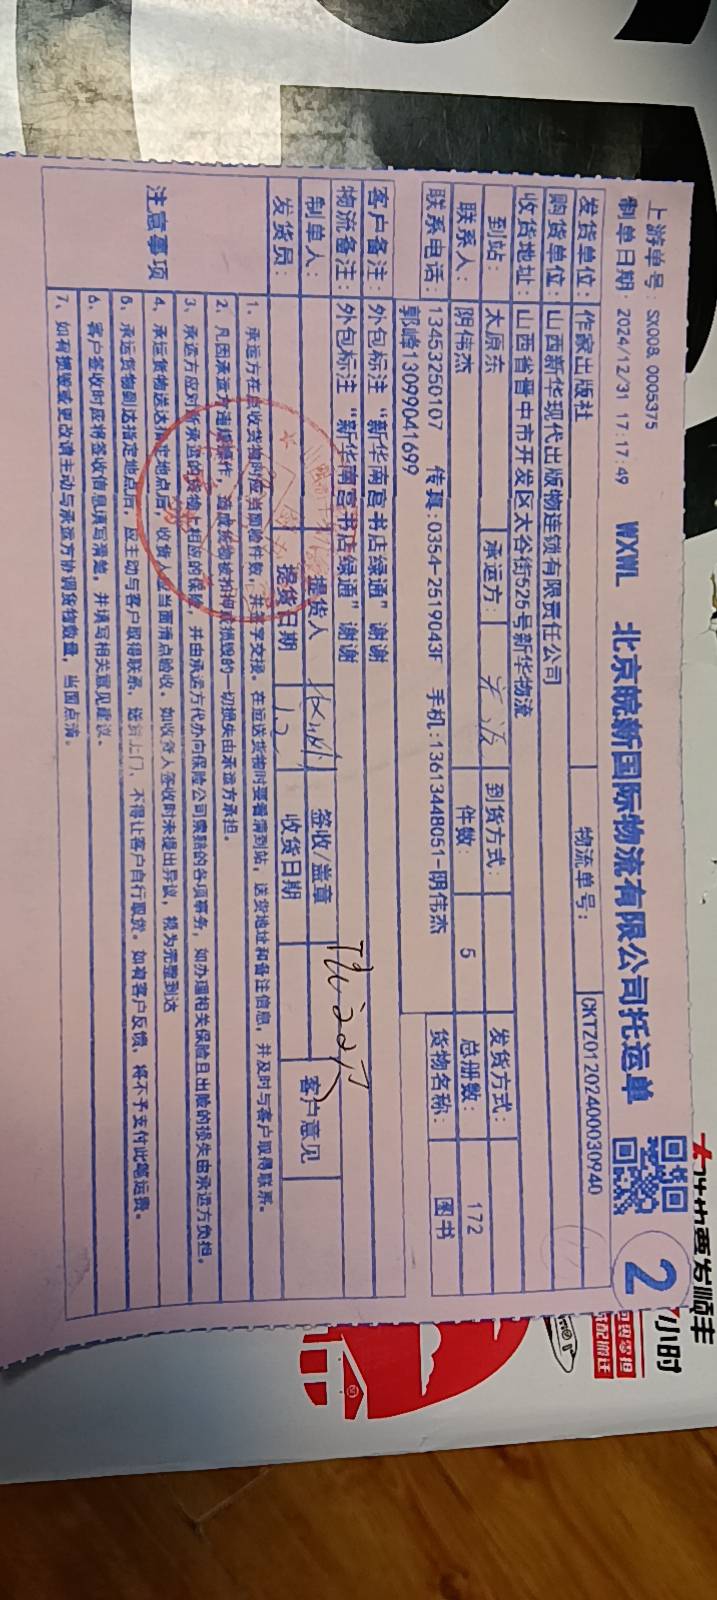 上游单号: SX008.0005375
制单日期: 2024/12/31 17:17:49
WXWL 北京皖新国际物流有限公司托运单
2
发货单位: 作家出版社 物流单号: CKTZ01202400030940
购货单位: 山西新华现代出版物连锁有限责任公司
收货地址: 山西省晋中市开发区太谷街525号新华物流
到站: 太原东 承运方: 到货方式: 发货方式:
联系人: 阴伟杰 件数: 5 总册数: 172
联系电话: 13453250107 传真:0354-2519043F 手机:13613448051-阴伟杰 货物名称: 图书
郭峰13099041699
客户备注: 外包标注“新华南宫书店绿通”谢谢
物流备注: 外包标注“新华南宫书店绿通”谢谢
制单人: 提货人 签收/盖章 客户意见
发货员: 提货日期 1.2 收货日期
注意事项
1、承运方在点收货物时应当面验件数,并签字交接。在运送货物时要看清到站,送货地址和备注信息,并及时与客户取得联系。
2、凡因承运方违规操作,造成货物被扣押或损毁的一切损失由承运方承担。
3、承运方应对所承运的货物上相应的保险,并由承运方代办向保险公司索赔的各项事务,如办理相关保险且出险的损失由承运方负担。
4、承运货物送达指定地点后,收货人应当面清点验收。如收货人签收时未提出异议,视为完整到达
5、承运货物到达指定地点后,应主动与客户取得联系,送货上门,不得让客户自行取货。如有客户反馈,将不予支付此笔运费。
6、客户签收时应将签收信息填写清楚,并填写相关意见建议。
7、如有损毁或更改请主动与承运方协调货物数量,当面点清。
大件也要发顺丰
小时